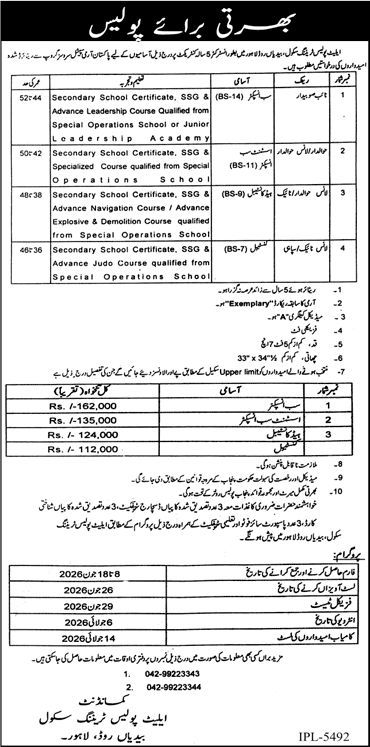 بھرتی برائے پولیس
ایلیٹ پولیس ٹریننگ سکول، بیدیاں روڈ لاہور میں بطور انسٹرکٹر 5 سالہ کنٹریکٹ پر درج ذیل آسامیوں کے لیے پاکستان آرمی سپیشل سروسز گروپ سے ریٹائرڈ شدہ
امیدواروں کی درخواستیں مطلوب ہیں۔
نمبر شمار رینک آسامی تعلیم و تجربہ عمر کی حد
1 نائب صوبیدار سب انسپکٹر (BS-14) Secondary School Certificate, SSG & Advance Leadership Course Qualified from Special Operations School or Junior Leadership Academy 44 تا 52
2 حوالدار/لانس حوالدار اسسٹنٹ سب انسپکٹر (BS-11) Secondary School Certificate, SSG & Specialized Course qualified from Special Operations School 42 تا 50
3 لانس حوالدار/نائیک ہیڈ کانسٹیبل (BS-9) Secondary School Certificate, SSG & Advance Navigation Course / Advance Explosive & Demolition Course qualified from Special Operations School 38 تا 48
4 لانس نائیک/سپاہی کنسٹیبل (BS-7) Secondary School Certificate, SSG & Advance Judo Course qualified from Special Operations School 36 تا 46
1- ریٹائر ہوئے 5 سال سے زائد عرصہ نہ گزرا ہو۔
2- آرمی کا سابقہ ریکارڈ "Exemplary" ہو۔
3- میڈیکل کیٹگری "A" ہو۔
4- فزیکلی فٹ
5- قد، کم از کم 5 فٹ 7 انچ
6- چھاتی، کم از کم 33" x 34½"
7- منتخب ہونے والے امیدواروں کو Upper limit سکیل کے مطابق پے اور الاؤنسز دیئے جائیں گے جن کی تفصیل درج ذیل ہے
نمبر شمار آسامی کل تنخواہ (تقریباً)
1 سب انسپکٹر Rs. /-162,000
2 اسسٹنٹ سب انسپکٹر Rs. /-135,000
3 ہیڈ کانسٹیبل Rs. /- 124,000
کنسٹیبل Rs. /- 112,000
8- ملازمت ناقابل پنشن ہوگی۔
9- میڈیکل اور رخصت کی سہولت حکومت پنجاب کے مروجہ قوانین کے مطابق دی جائے گی۔
10- بھرتی مکمل میرٹ اور مجوزہ قواعد پنجاب پولیس رولز کے تحت ہوگی۔
خواہشمند حضرات ضروری کاغذات معہ 3 عدد تصدیق شدہ کاپیاں ڈسچارج سرٹیفکیٹ، 3 عدد تصدیق شدہ کاپیاں شناختی
کارڈ، 3 عدد پاسپورٹ سائز فوٹو اور تعلیمی سرٹیفکیٹ کے ہمراہ درج ذیل پروگرام کے مطابق ایلیٹ پولیس ٹریننگ
سکول، بیدیاں روڈ لاہور میں پیش ہونگے۔
پروگرام:
فارم حاصل کرنے اور جمع کرانے کی تاریخ 8 تا 18 جون 2026
لسٹ آویزاں کرنے کی تاریخ 26 جون 2026
فزیکل ٹیسٹ 29 جون 2026
انٹرویو کی تاریخ 6 جولائی 2026
کامیاب امیدواروں کی لسٹ 14 جولائی 2026
مزید براں کسی بھی معلومات کی صورت میں درج ذیل نمبروں پر دفتری اوقات میں معلومات حاصل کی جا سکتی ہیں۔
1. 042-99223343
2. 042-99223344
کمانڈنٹ
ایلیٹ پولیس ٹریننگ سکول
بیدیاں روڈ، لاہور۔
IPL-5492